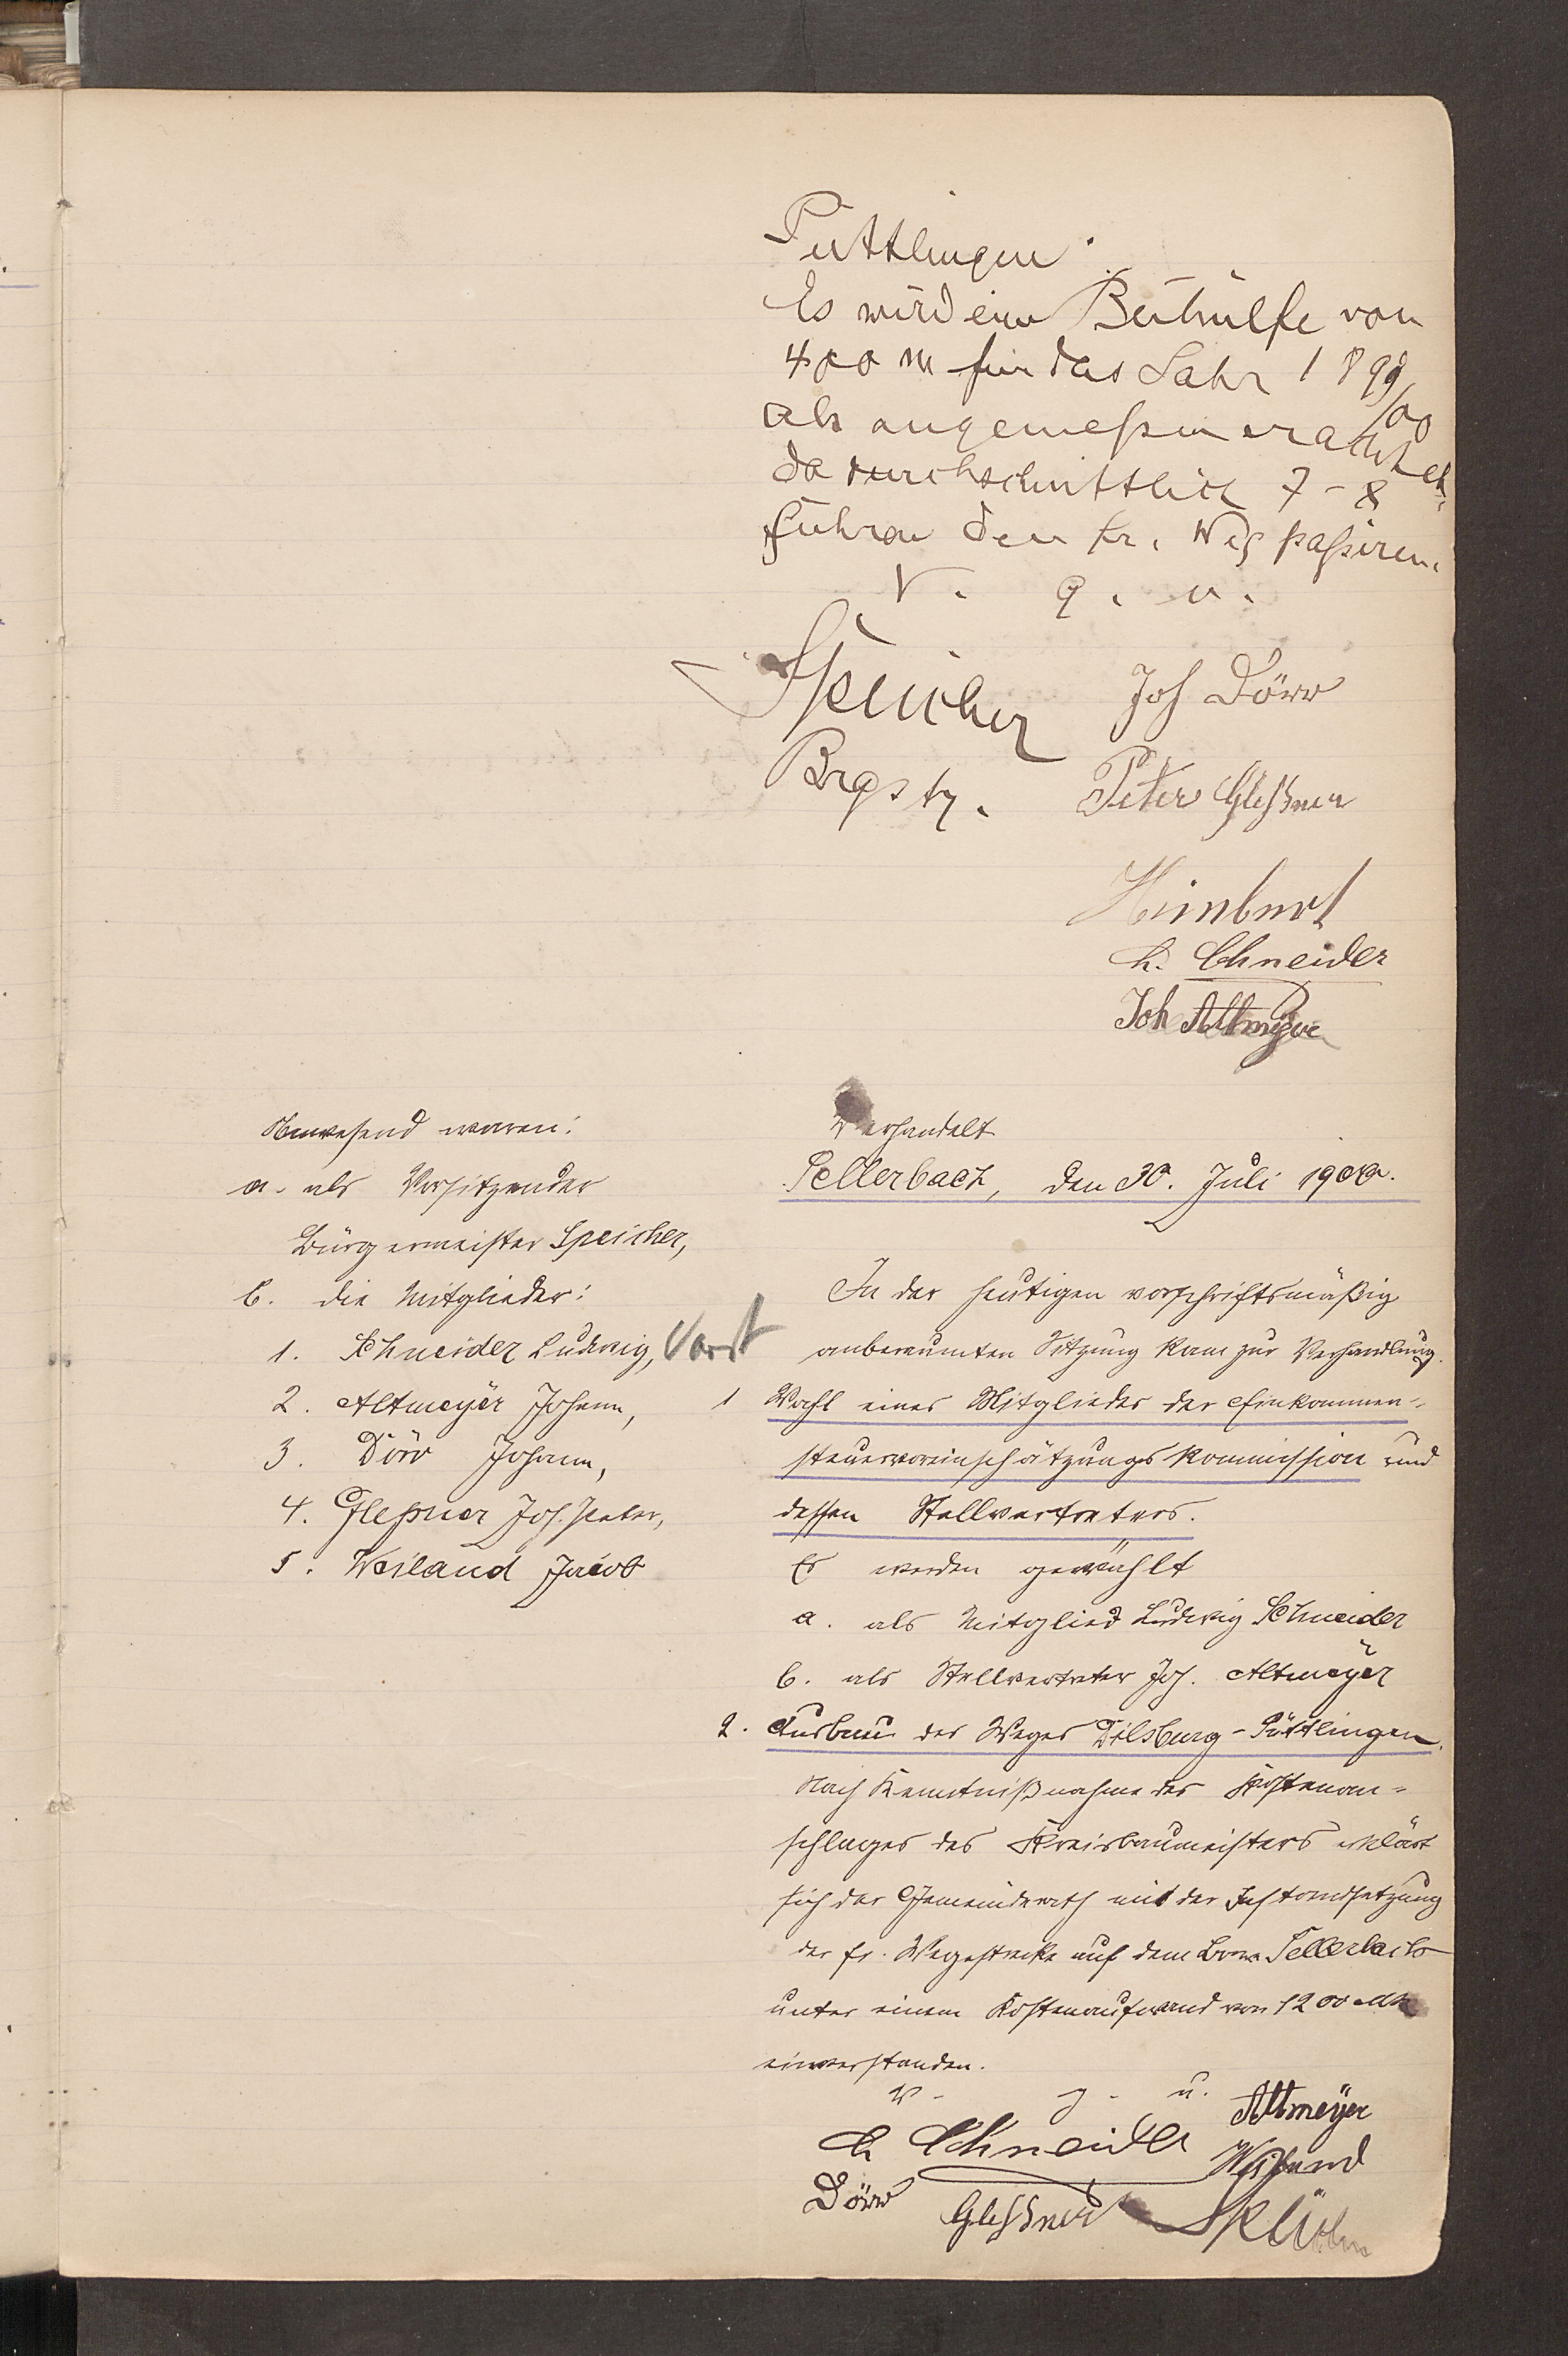 Puttlingen.
Es wird eine Beihülfe von
400 M für das Jahr 1899/00
als angemeßen erachtet,
da durchschnittlich 7-8
Fuhren den fr. Weg paßiren.
V. g. u.
Speicher
Joh Dörr
Brgstr.
Peter Gleßner
Himbert
L. Schneider
Joh Altmeyer
Anwesend waren:
a. als Vorsitzender
Bürgermeister Speicher,
b. die Mitglieder:
1. Schneider Ludwig, Vorst
2. Altmeÿer Johann,
3. Dörr Johann,
4. Gleßner Joh. Peter,
5. Weiland Jacob
Verhandelt
Sellerbach, den 30. Juli 1900.
In der heutigen vorschriftsmäßig
anberaumten Sitzung kam zur Verhandlung.
1 Wahl eines Mitgliedes der Einkommen-
steuervoreinschätzungskommission und
dessen Stellvertreters.
Es werden gewählt
a. als Mitglied Ludwig Schneider
b. als Stellvertreter Joh. Altmeÿer
2. Ausbau des Weges Dilsburg-Püttlingen.
Nach Kenntnißnahme des Kostenan-
schlages des Kreisbaumeisters erklärt
sich der Gemeinderath mit der Instandsetzung
der fr. Wegestrecke auf dem Bann Sellerbach
unter einem Kostenaufwand von 1200 Mk
einverstanden.
v. g. u.
Altmeÿer
L Schneider
Weiland
Dörr
Gleßner
Speicher